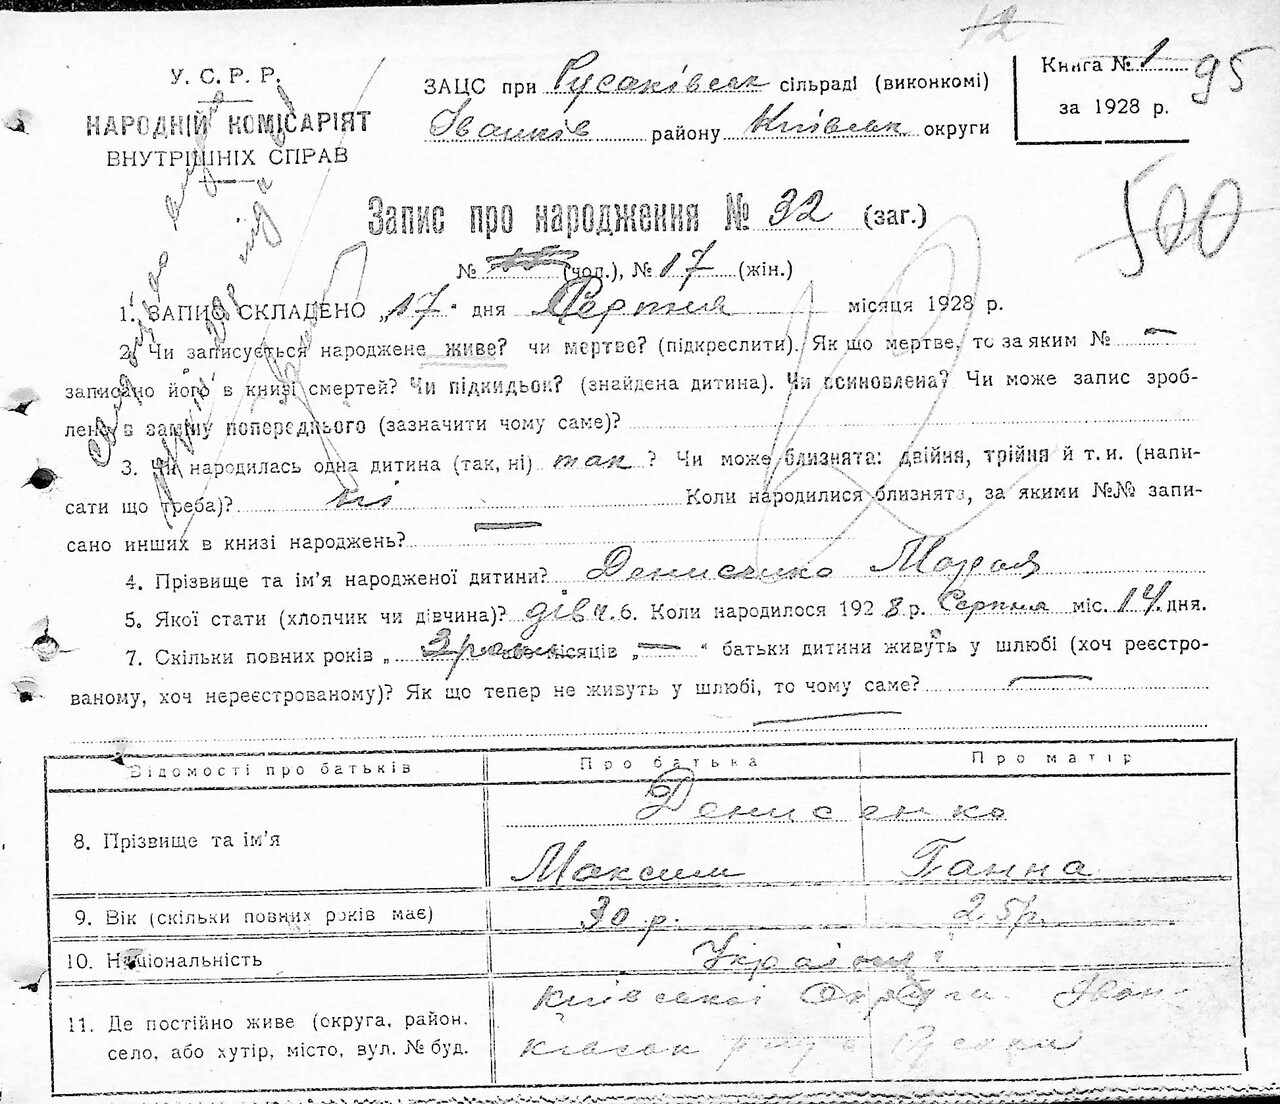 12
У. С. Р. Р.
НАРОДНІЙ КОМІСАРІЯТ
ВНУТРІШНІХ СПРАВ
ЗАЦС при Русаківськ сільраді (виконкомі)
Іванків району Київськ округи
Книга № 1
за 1928 р.
95
500
Запис про народження № 32 (заг.)
№ (чол.), № 17 (жін.)
1. ЗАПИС СКЛАДЕНО „17" дня Серпня місяця 1928 р.
2. Чи записується народжене живе? чи мертве? (підкреслити). Як що мертве, то за яким № —
записано його в книзі смертей? Чи підкидьок? (знайдена дитина). Чи всиновлена? Чи може запис зроб-
лено в заміну попереднього (зазначити чому саме)?
3. Чи народилась одна дитина (так, ні) так ? Чи може близнята: двійня, трійня й т. и. (напи-
сати що треба)? ні Коли народилися близнята, за якими №№ запи-
сано инших в книзі народжень? —
4. Прізвище та ім'я народженої дитини? Денисенко Марія
5. Якої стати (хлопчик чи дівчина)? дівч. 6. Коли народилося 1928 р. Серпня міс. 14. дня.
7. Скільки повних років „ 3 роки місяців „ — " батьки дитини живуть у шлюбі (хоч реєстро-
ваному, хоч нереєстрованому)? Як що тепер не живуть у шлюбі, то чому саме? —
—
Відомості про батьків Про батька Про матір
8. Прізвище та ім'я Денисенко
Максим Ганна
9. Вік (скільки повних років має) 30 р. 25 р.
10. Національність Українці
11. Де постійно живе (округа, район, Київської Округи Іван-
село, або хутір, місто, вул. № буд. ківськ р-ну с